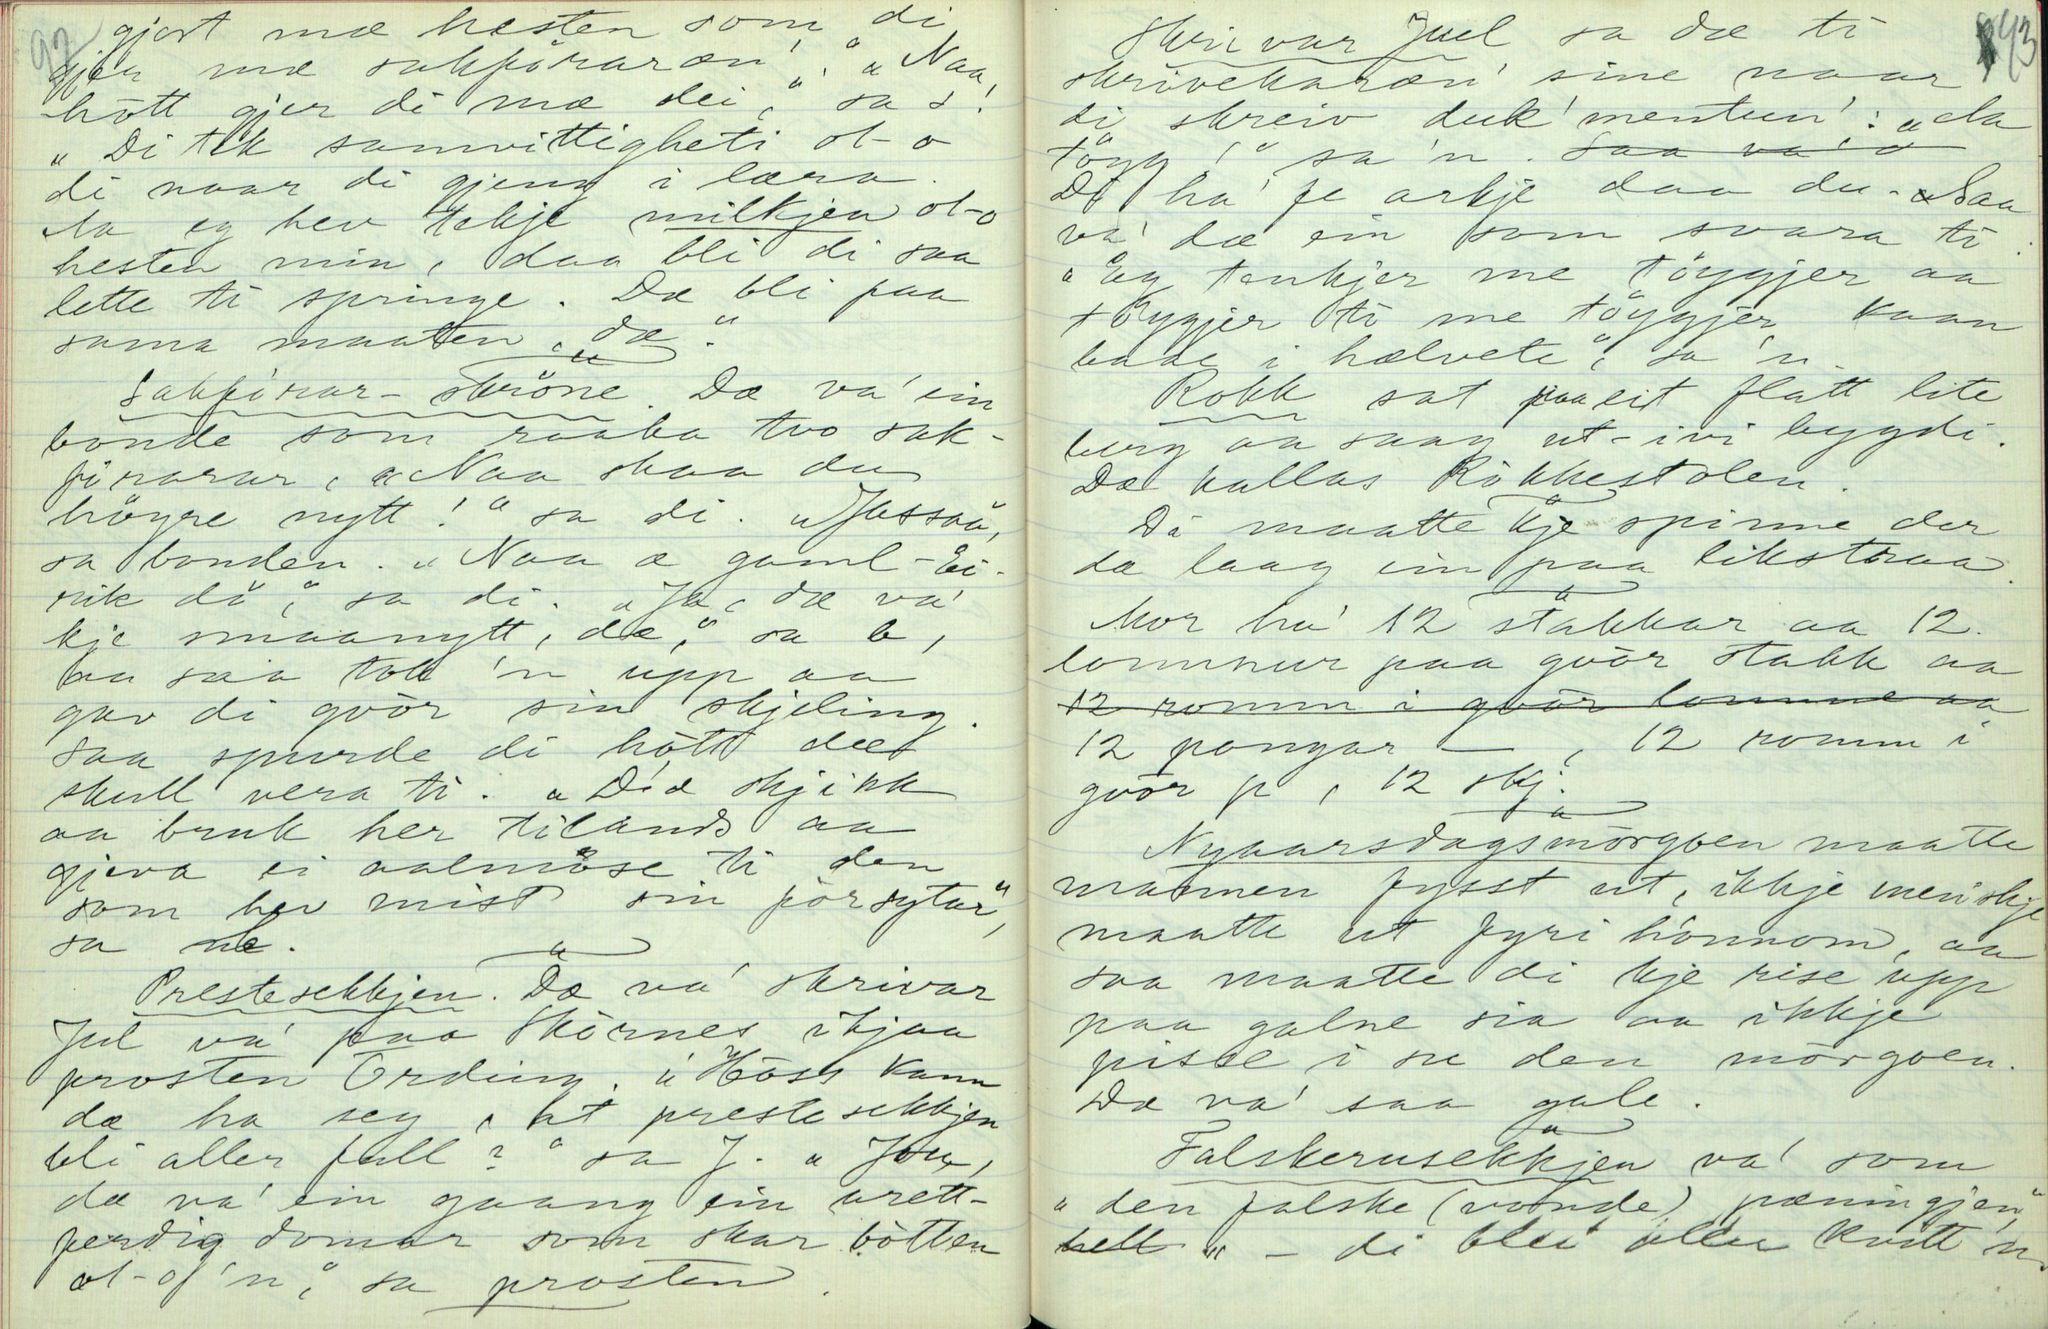 92
gjort mæ hesten som di
gjer mæ sakföraræn! „Naa,
hött gjer di mæ dei,“ sa s!
„Di tek samvittigheti ot-o
di naar di gjeng i læra.
Ja eg hev tekje milkjen ot-o
hesten min, daa bli di saa
lette ti springe. Dæ bli paa
sama maaten, dæ.“
Sakförar-skröne. Dæ va' ein
bonde som raaka tvo sak-
förarar, „Naa skaa du
höyre nytt!“ sa di. „Jassaa,
sa bonden. „Naa æ gaml-Ei-
rik dö,“ sa di. „Ja, dæ va'
kje smaanytt, dæ,“ sa b,
aa saa tok 'n upp aa
gav di qvör sin skjeling.
Saa spurde di hött dæ
skull vera ti. „D'æ skjikk
aa bruk her tilands aa
gjeva ei aalmöse ti den
som hev mist sin försytar“,
sa
Prestesekkjen. Dæ va' skrivar
Jul va' paa Skörnes ihjaa
prosten Ording. „Höss kann
dæ ha seg, at prestesekkjen
bli aller full?“ sa J. „Jou,
dæ va' ein gaang ein urett-
ferdig domar som skar bötten
ot-o'n,“ sa prosten.
93
Skrivar Juel sa dæ ti
skrivekaræn' sine naar
di skreiv duk'mentun': „da
tögg!“ sa 'n. Saa va' d
Di ha' fe arkje daa du- „Saa
va' dæ ein som svara ti.
„Eg tenkjer me töggjer aa
töggjer ti me töggjer kaan
baae i hælvete“, sa 'n.
Rokk sat paa eit flatt lite
berg aa saag ut-ivi bygdi.
Dæ kallas Rokkestolen.
Di maatte kje spinne der
dæ laag ein paa likstraa.
Mor ha' 12 stakkar aa 12
lommur paa qvör stakk aa
12 romm i qvör lomme aa
12 pongar — , 12 romm i
qvör p , 12 skj.
Nyaarsdagsmörgoen maatte
mannen fysst ut, ikkje mennskje
maatte ut fyri hönnom, aa
saa maatte di kje rise upp
paa galne sia aa ikkje
pisse i su den mörgoen.
Dæ va' saa gale.
Falskerusekkjen va' som
„den falske (vonde) pæningjen“
hell „ — di blei aller kvitt 'n.